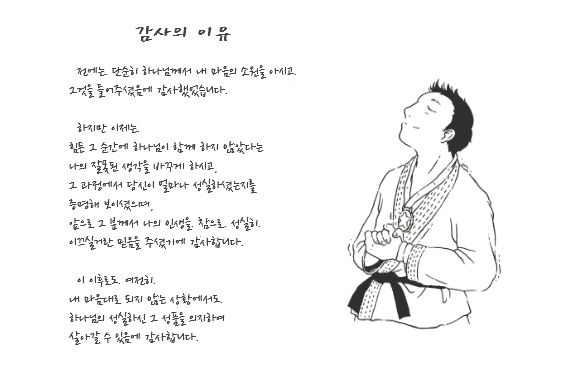 감사의 이유
전에는, 단순히 하나님께서 내 마음의 소원을 아시고,
그것을 들어주셨음에 감사했었습니다.
하지만 이제는,
힘든 그 순간에 하나님이 함께 하지 않았다는
나의 잘못된 생각을 바꾸게 하시고,
그 과정에서 당신이 얼마나 성실하셨는지를
증명해 보이셨으며,
앞으로 그 분께서 나의 인생을, 참으로, 성실히,
이끄실거란 믿음을 주셨기에 감사합니다.
이 이후로도, 여전히,
내 마음대로 되지 않는 상황에서도,
하나님의 성실하신 그 성품을 의지하여
살아갈 수 있음에 감사합니다.